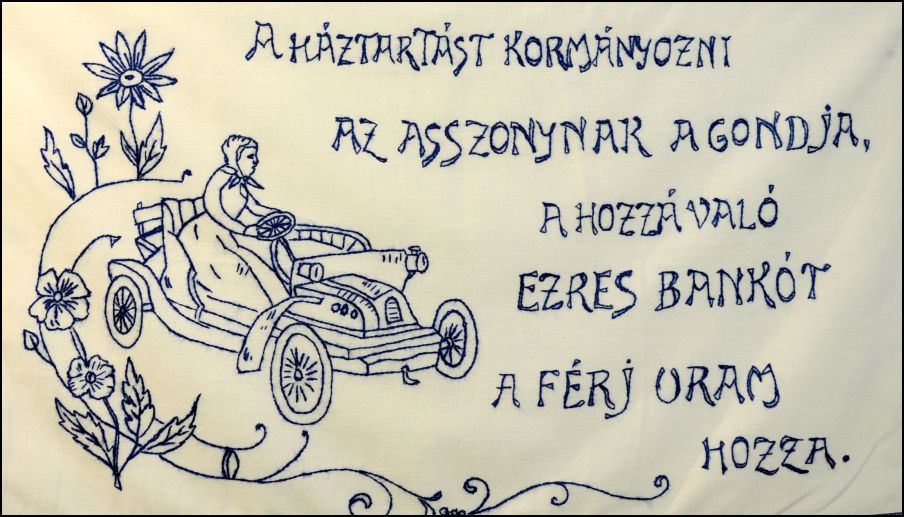 A HÁZTARTÁST KORMÁNYOZNI
AZ ASSZONYNAK A GONDJA,
A HOZZÁVALÓ
EZRES BANKÓT
A FÉRJ URAM
HOZZA.